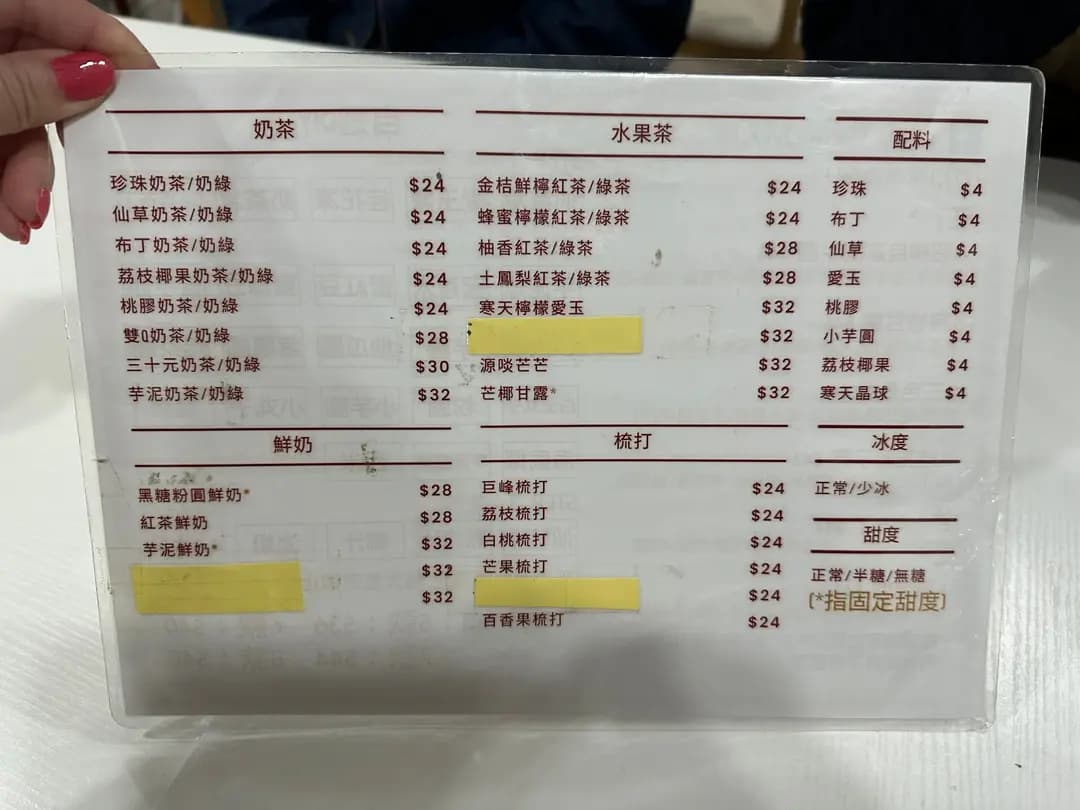 奶茶
珍珠奶茶/奶綠 $24
仙草奶茶/奶綠 $24
布丁奶茶/奶綠 $24
荔枝椰果奶茶/奶綠 $24
桃膠奶茶/奶綠 $24
雙Q奶茶/奶綠 $28
三十元奶茶/奶綠 $30
芋泥奶茶/奶綠 $32
水果茶
金桔鮮檸紅茶/綠茶 $24
蜂蜜檸檬紅茶/綠茶 $24
柚香紅茶/綠茶 $28
土鳳梨紅茶/綠茶 $28
寒天檸檬愛玉 $32
$32
源啖芒芒 $32
芒椰甘露* $32
配料
珍珠 $4
布丁 $4
仙草 $4
愛玉 $4
桃膠 $4
小芋圓 $4
荔枝椰果 $4
寒天晶球 $4
鮮奶
黑糖粉圓鮮奶* $28
紅茶鮮奶 $28
芋泥鮮奶* $32
$32
$32
梳打
巨峰梳打 $24
荔枝梳打 $24
白桃梳打 $24
芒果梳打 $24
$24
百香果梳打 $24
冰度
正常/少冰
甜度
正常/半糖/無糖
(*指固定甜度)